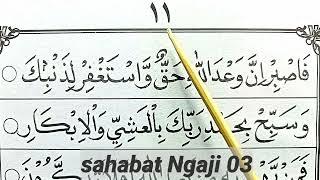 ١١
فَاصْبِرْ اِنَّ وَعْدَ اللّٰهِ حَقٌّ وَّاسْتَغْفِرْ لِذَنْۢبِكَ
وَسَبِّحْ بِحَمْدِ رَبِّكَ بِالْعَشِيِّ وَالْاِبْكَارِ
sahabat Ngaji 03